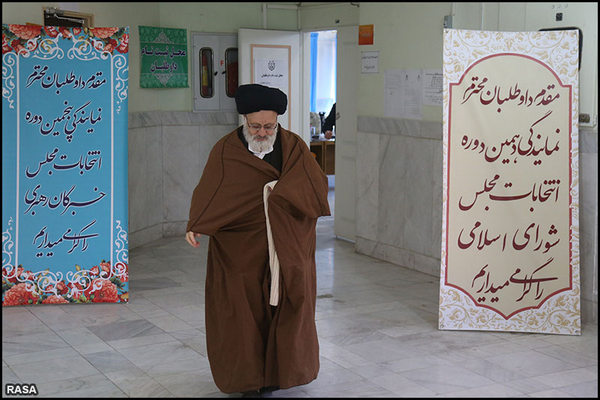 مقدم داوطلبان محترم
نمایندگی پنجمین دوره
انتخابات مجلس
خبرگان رهبری
را گرامی میداریم
محل ثبت نام
داوطلبان
مقدم داوطلبان محترم
نمایندگی دهمین دوره
انتخابات مجلس
شورای اسلامی
را گرامی میداریم
RASA